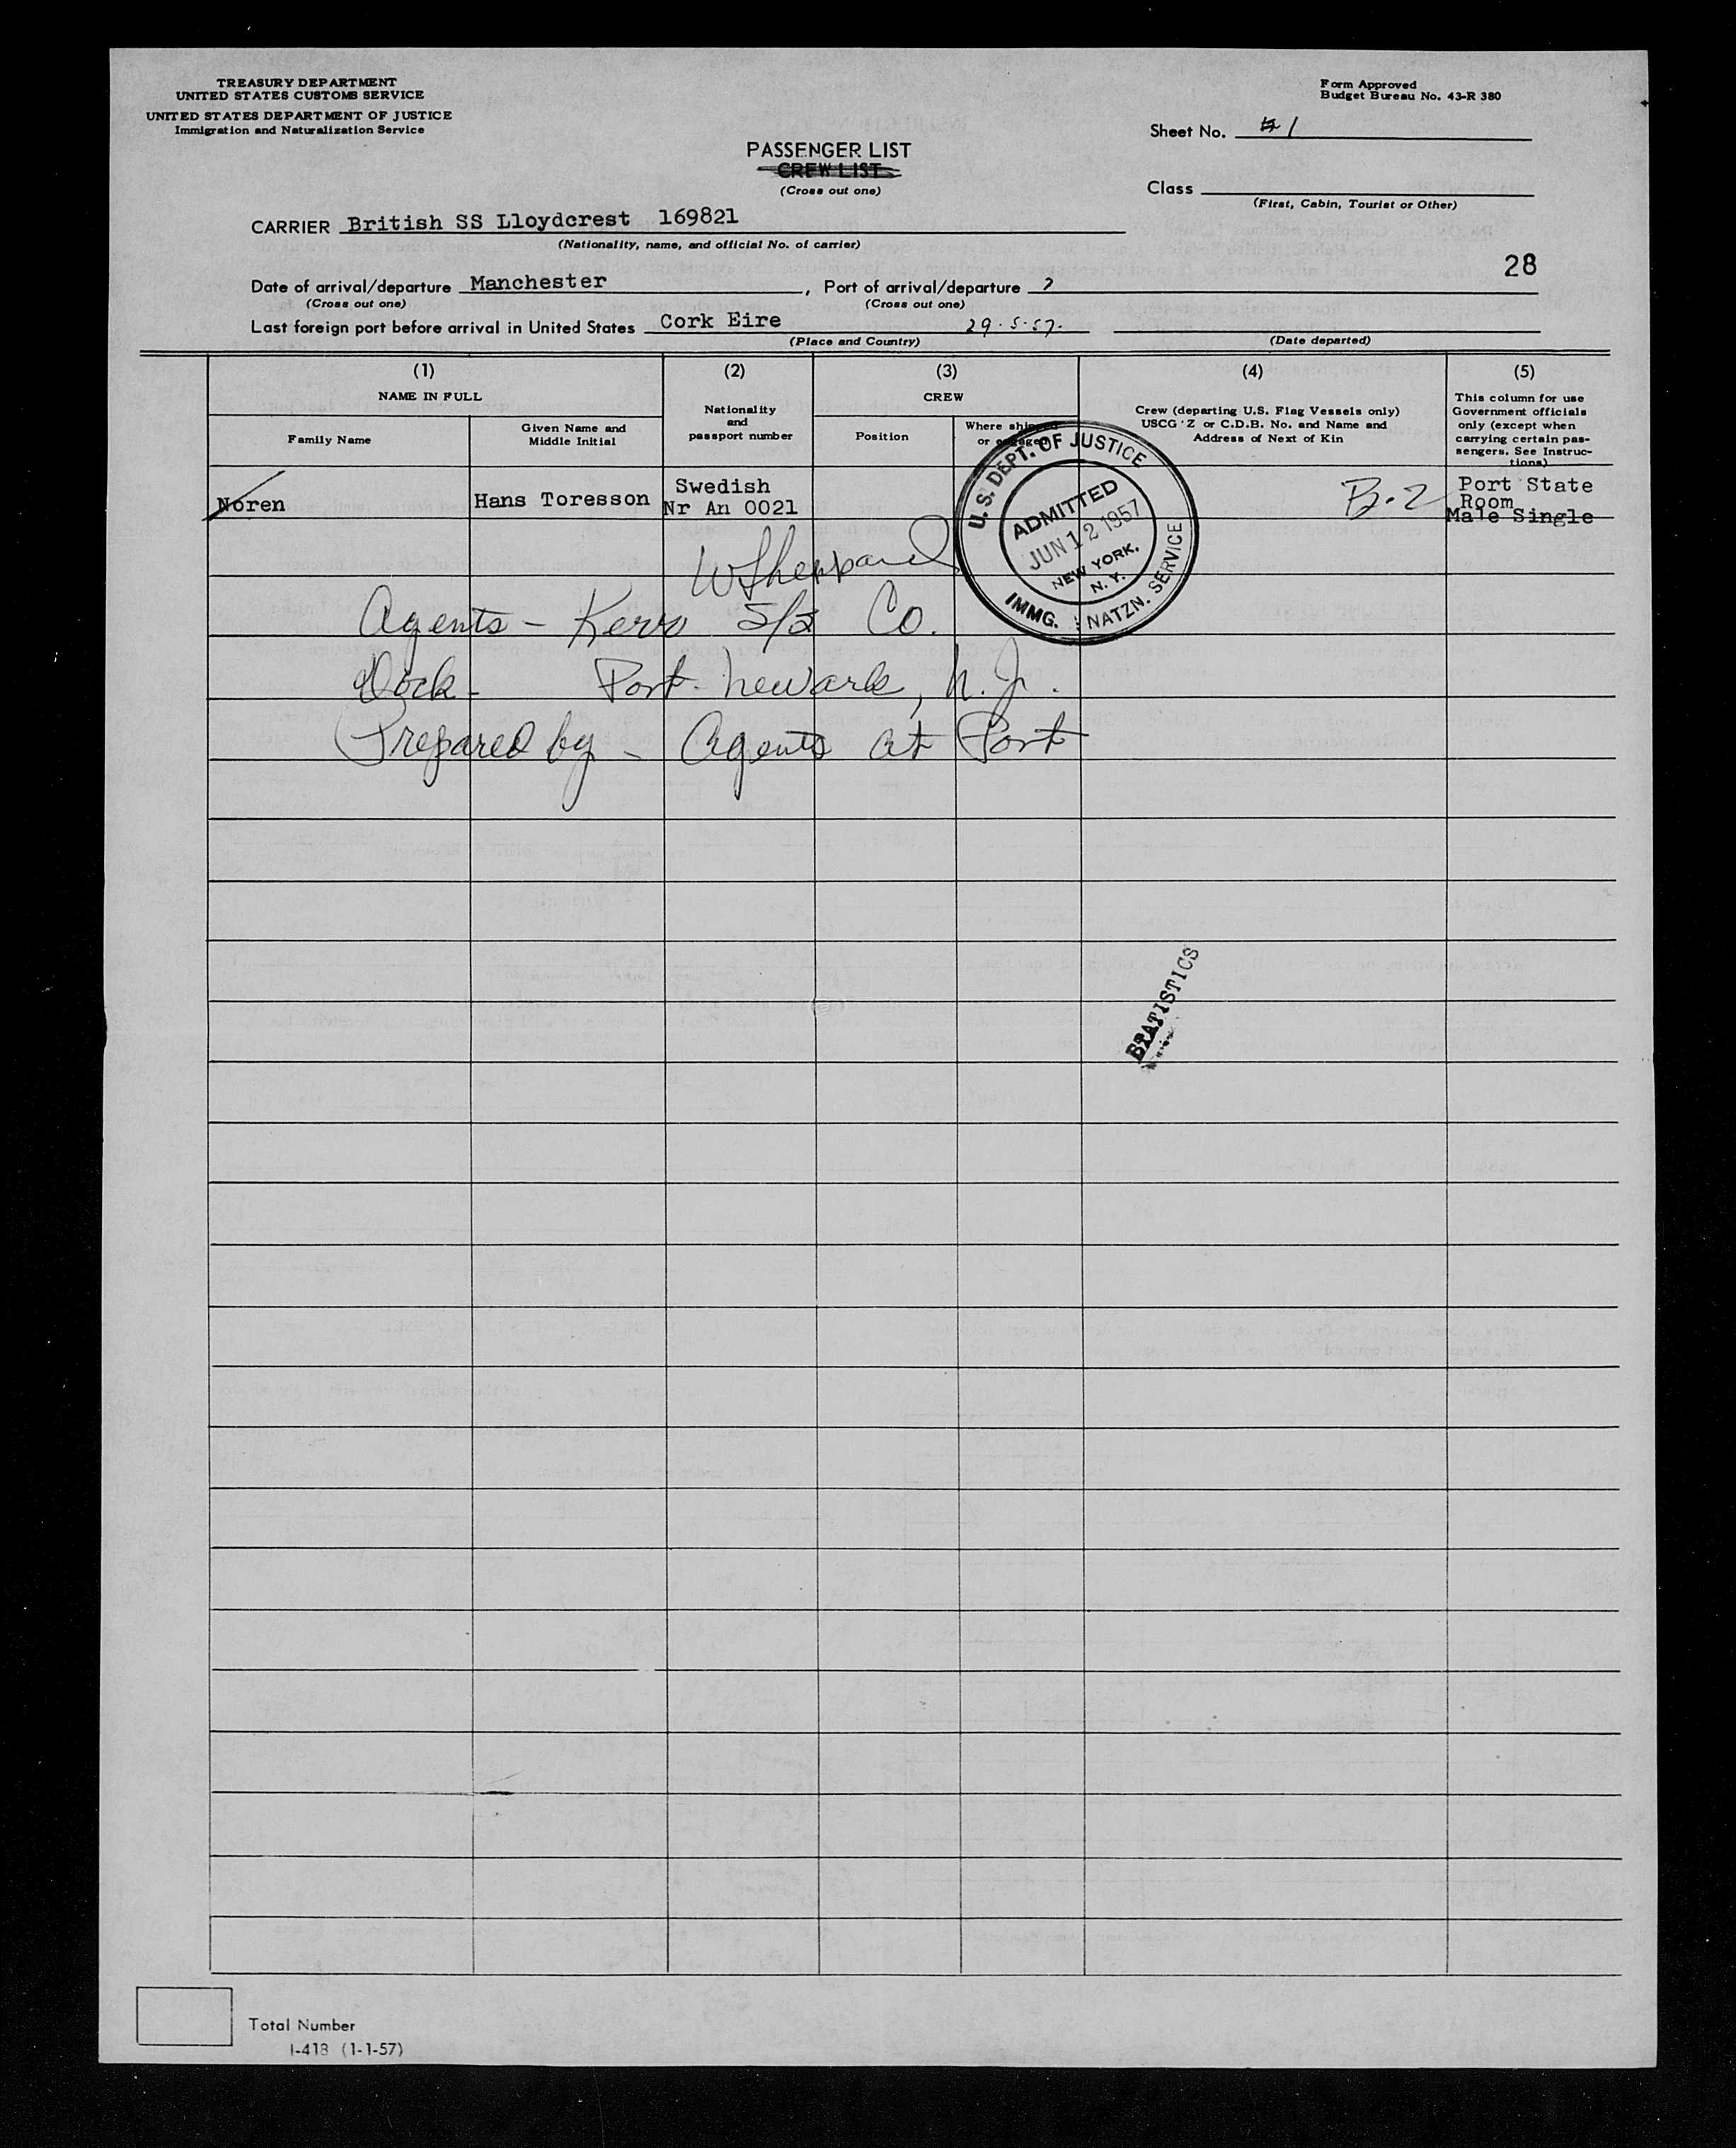 TREASURY DEPARTMENT
UNITED STATES CUSTOMS SERVICE
UNITED STATES DEPARTMENT OF JUSTICE
Immigration and Naturalization Service
Form Approved
Budget Bureau No. 43-R 380
Sheet No. # 1
PASSENGER LIST
CREW LIST
(Cross out one)
Class
(First, Cabin, Tourist or Other)
CARRIER British SS Lloydcrest 169821
(Nationality, name, and official No. of carrier)
28
Date of arrival/departure Manchester , Port of arrival/departure ?
(Cross out one) (Cross out one)
Last foreign port before arrival in United States Cork Eire 29.5.57.
(Place and Country) (Date departed)
(1)
NAME IN FULL
Family Name
Given Name and
Middle Initial
(2)
Nationality
and
passport number
(3)
CREW
Position
Where shipped
or engaged
(4)
Crew (departing U.S. Flag Vessels only)
USCG 'Z or C.D.B. No. and Name and
Address of Next of Kin
(5)
This column for use
Government officials
only (except when
carrying certain pas-
sengers. See Instruc-
tions)
Noren
Hans Toresson
Swedish
Nr An 0021
B-2
Port State
Room
Male Single
U.S. DEPT. OF JUSTICE
ADMITTED
JUN 12 1957
NEW YORK,
N. Y.
IMMG. NATZN. SERVICE
W Sheppard
Agents - Kerr S/S Co.
Dock - Port Newark, N.J.
Prepared by - Agents at Port
STATISTICS
Total Number
I-418 (1-1-57)